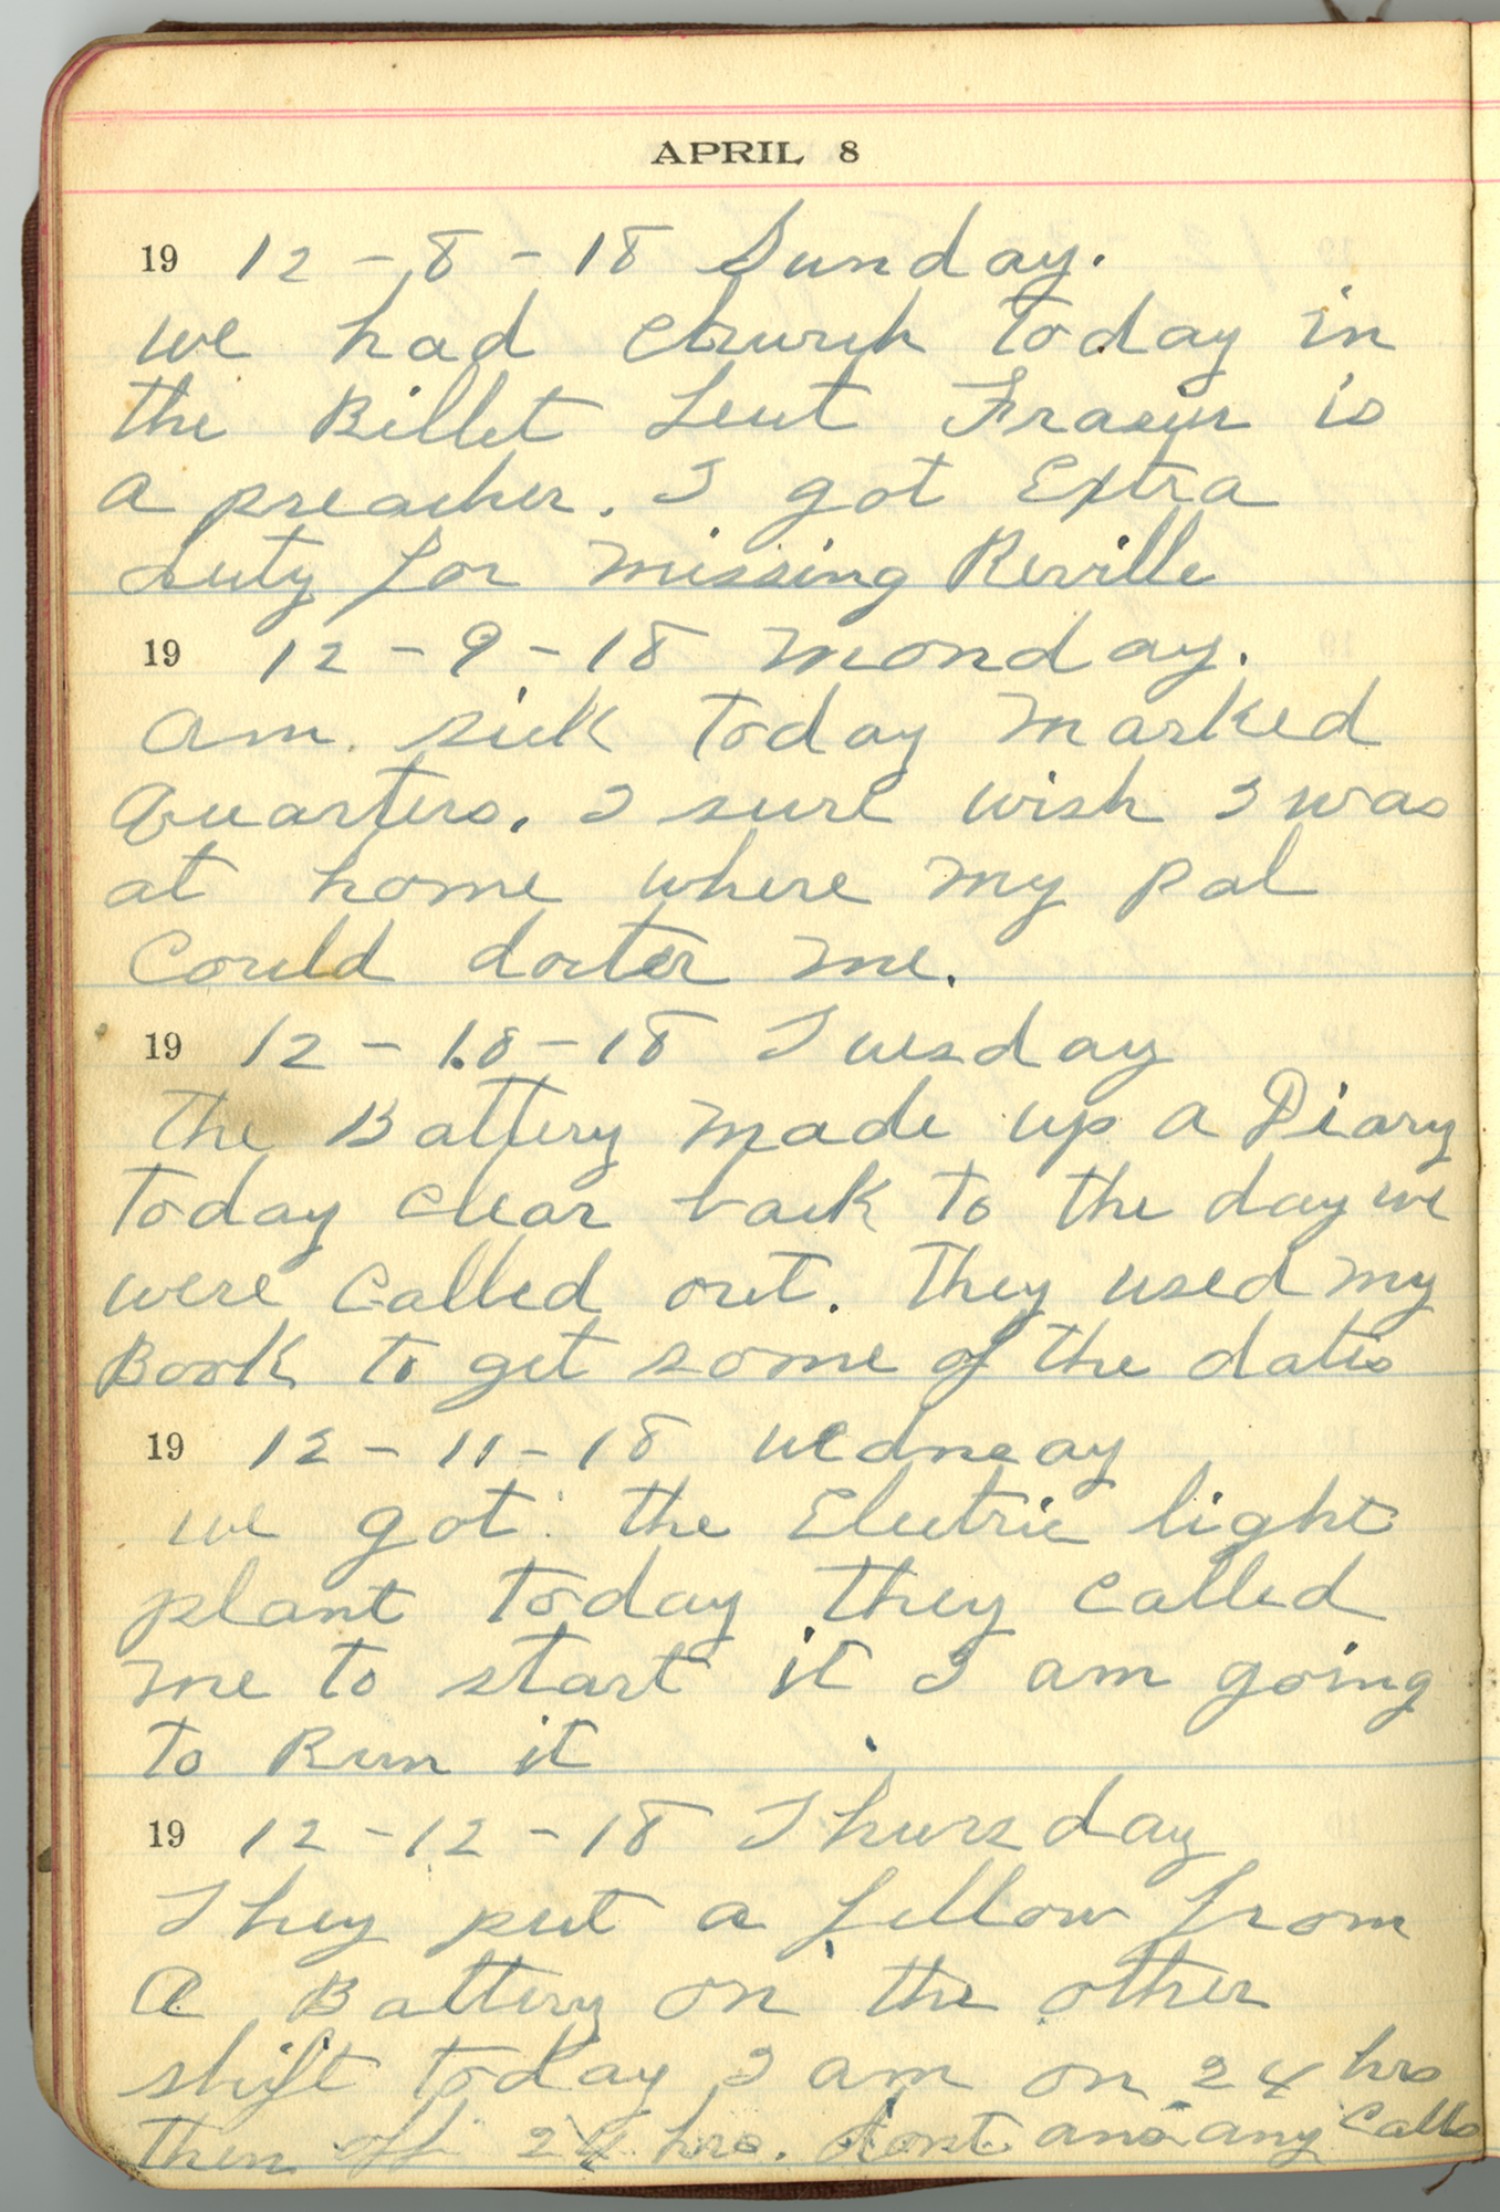 APRIL 8
19 12-8-18 Sunday.
we had church today in
the Billet Leut Frasier is
a preacher. I got Extra
duty for missing Reville
19 12-9-18 monday.
am. sick today marked
Quarters. I sure wish I was
at home where my pal
Could docter me.
19 12-10-18 Tuesday
The Battery made up a Diary
today clear back to the day we
were called out. They used my
Book to get some of the dates
19 12-11-18 wedneay
we got the Electric light
plant today they called
me to start it I am going
to Run it
19 12-12-18 Thursday
They put a fellow from
A Battery on the other
shift today I am on 24 hrs
then off 24 hrs. dont ans any Calls